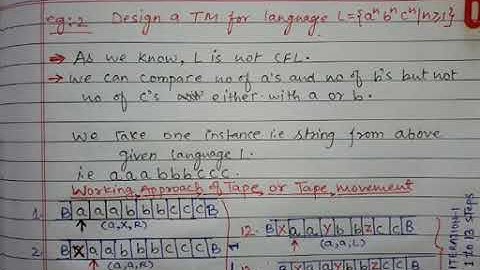 eg:2 Design a TM for language L={aⁿbⁿcⁿ|n≥1}
→ As we know, L is not CFL.
→ we can compare no of a's and no of b's but not
no of c's either with a or b.
we take one instance i.e string from above
given language l.
i.e aaabbbccc.
Working Approach of Tape, or Tape movement
1. B a a a b b b c c c B
(a,X,R)
12. B X a a Y b b Z c c B
(a,a,L)
2. B X a a b b b c c c B
(a,a,R)
13.
ITERATION-1
1 to 13 steps